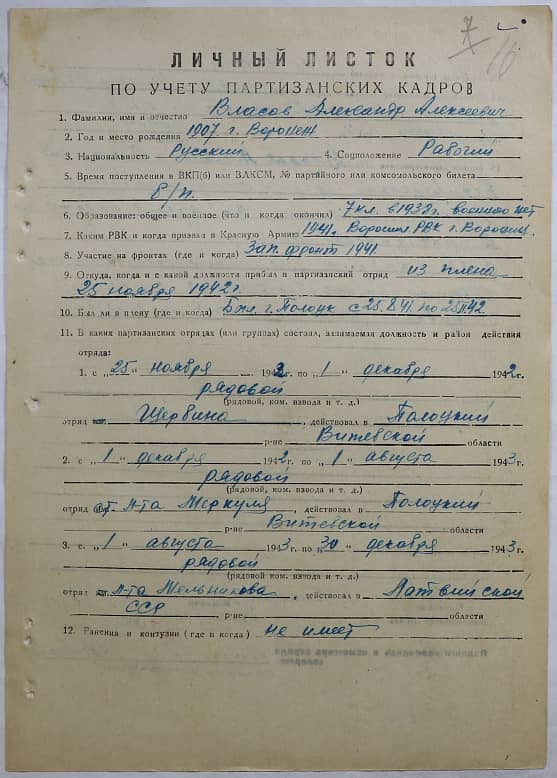 7
16
ЛИЧНЫЙ ЛИСТОК
ПО УЧЕТУ ПАРТИЗАНСКИХ КАДРОВ
1. Фамилия, имя и отчество Власов Александр Алексеевич
2. Год и место рождения 1907 г. Воронеж
3. Национальность Русский 4. Соцположение Рабочий
5. Время поступления в ВКП(б) или ВЛКСМ, № партийного или комсомольского билета
б/п.
6. Образование: общее и военное (что и когда окончил) 7 кл. в 1938 г. военного нет
7. Каким РВК и когда призван в Красную Армию 1941. Ворошил. РВК г. Воронеж.
8. Участие на фронтах (где и когда) Зап. фронт 1941.
9. Откуда, когда и с какой должности прибыл в партизанский отряд из плена
25 ноября 1942 г.
10. Был ли в плену (где и когда) Был г. Полоцк с 25.8.41 по 25.11.42
11. В каких партизанских отрядах (или группах) состоял, занимаемая должность и район действия
отряда:
1. с „25" ноября 1942 г. по „1" декабря 1942 г.
рядовой
(рядовой, ком. взвода и т. д.)
отряд Щербина, действовал в Полоцкий
р-не Витебской области
2. с „1" декабря 1942 г. по „1" августа 1943 г.
рядовой
(рядовой, ком. взвода и т. д.)
отряд л-та Меркуля, действовал в Полоцкий
р-не Витебской области
3. с „1" августа 1943 г. по „30" декабря 1943 г.
рядовой
(рядовой, ком. взвода и т. д.)
отряд л-та Мельникова, действовал в Латвийской
ССР р-не области
12. Ранения и контузии (где и когда) не имеет